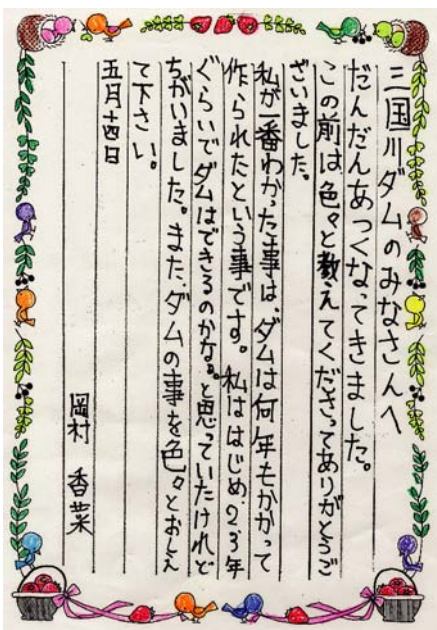 三国川ダムのみなさんへ
だんだんあつくなってきました。
この前は色々と教えてくださってありがとうご
ざいました。
私が一番わかった事は、ダムは何年もかかって
作られたという事です。私ははじめ、２３年
ぐらいでダムはできるのかな。と思っていたけれど
ちがいました。また、ダムの事を色々とおしえ
て下さい。
五月十四日
岡村　香菜